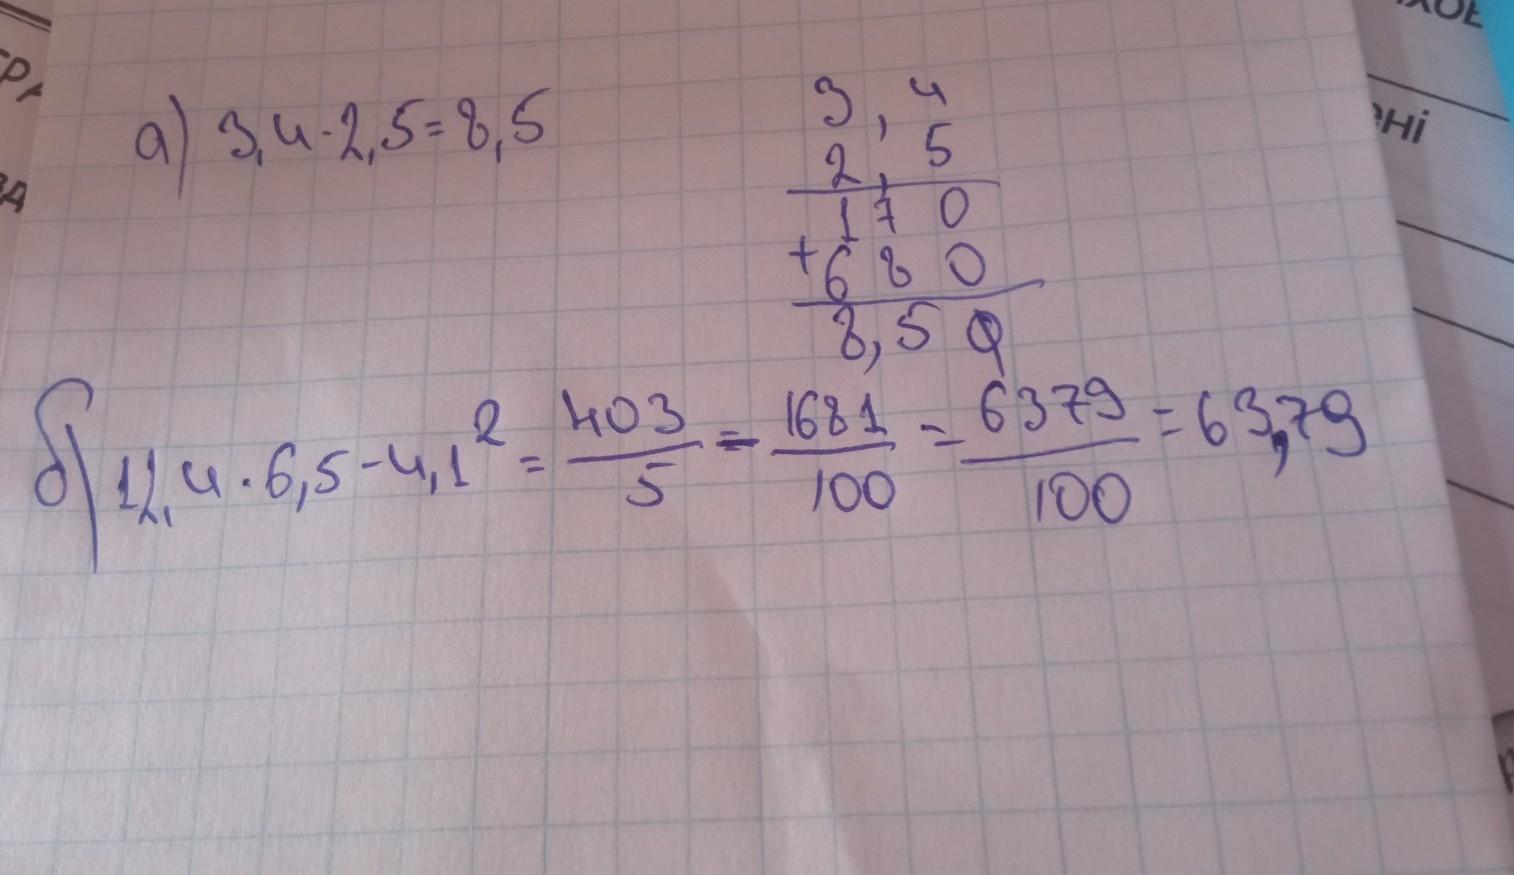 а) 3,4·2,5=8,5
3,4
2,5
170
+680
8,50
б) 12,4·6,5-4,1² = 403/5 = 1681/100 = 6379/100 = 63,79
ені